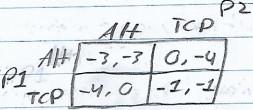 P2
AH TCP
P1 AH -3,-3 0,-4
TCP -4,0 -1,-1